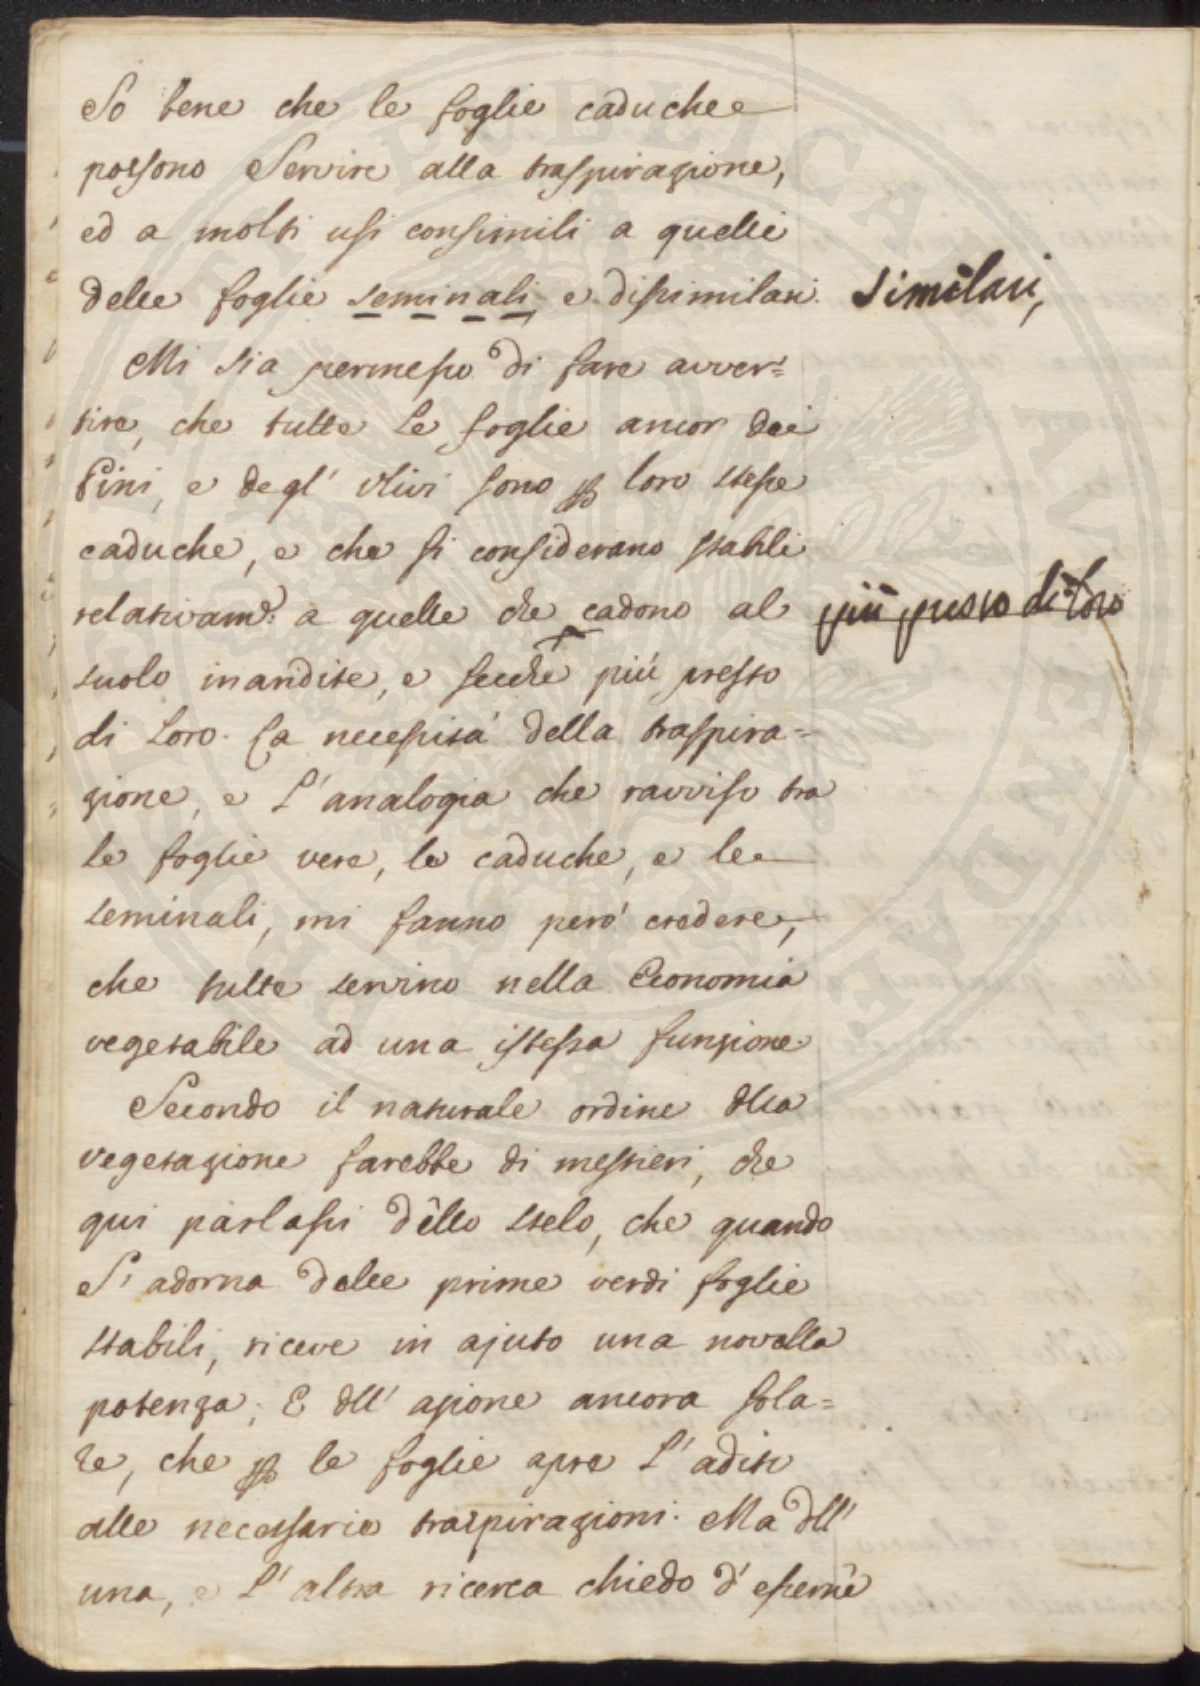 So bene che le foglie caduche
possono Servire alla traspirazione,
ed a molti usi consimili a quelli
delle foglie seminali, e dissimilari. similari,
Mi sia permesso di fare avver=
tire, che tutte le foglie ancor dei
Pini, e degl' Ulivi sono p loro stesse
caduche, e che si considerano stabili
relativam.e a quelle che cadono al più presto di loro
suolo inaridite, e secche più presto
di Loro. La necessità della traspira=
zione, e L'analogia che ravviso tra
le foglie vere, le caduche, e le
seminali, mi fanno però credere,
che tutte servino nella Economia
vegetabile ad una istessa funzione.
Secondo il naturale ordine dlla
vegetazione sarebbe di mestieri, che
qui parlassi dello stelo, che quando
S'adorna delle prime verdi foglie
stabili, riceve in ajuto una novella
potenza; E dll' azione ancora sola=
re, che p le foglie apre L'adito
alle necessarie traspirazioni. Ma dll'
una, e L'altra ricerca chiedo d'esserne